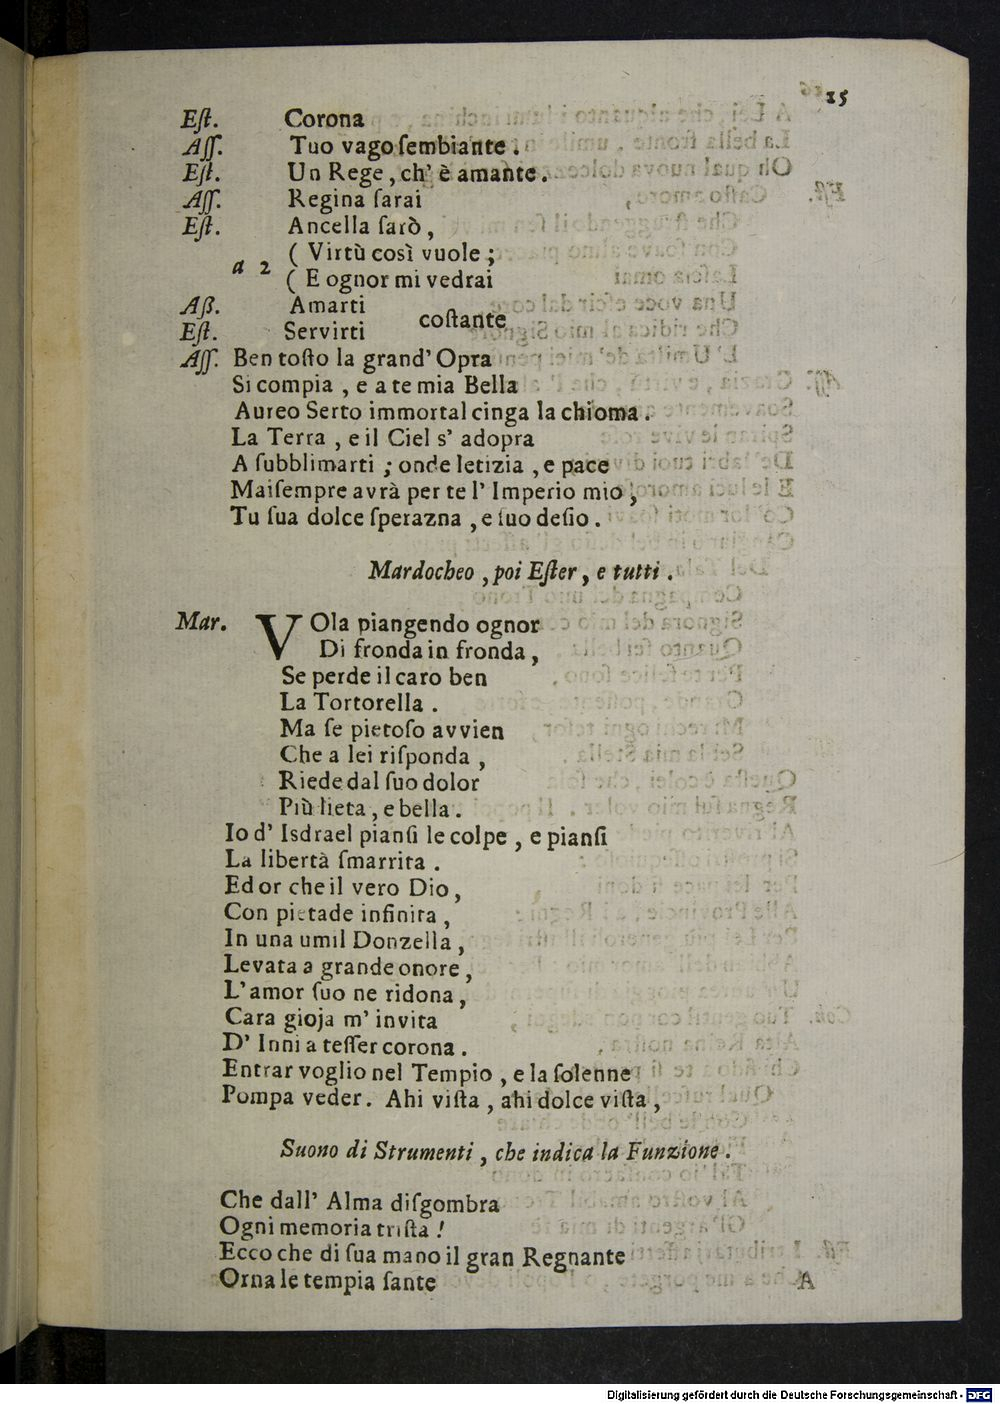 15
Eſt. Corona
Aſſ. Tuo vago ſembiante.
Eſt. Un Rege, ch' è amante.
Aſſ. Regina ſarai
Eſt. Ancella ſarò,
a 2 ( Virtù così vuole;
( E ognor mi vedrai
Aß. Amarti
costante
Eſt. Servirti
Aſſ. Ben toſto la grand' Opra
Si compia, e a te mia Bella
Aureo Serto immortal cinga la chioma.
La Terra, e il Ciel s' adopra
A ſubblimarti; onde letizia, e pace
Maiſempre avrà per te l' Imperio mio,
Tu ſua dolce ſperazna, e ſuo deſio.
Mardocheo, poi Eſter, e tutti.
Mar. VOla piangendo ognor
Di fronda in fronda,
Se perde il caro ben
La Tortorella.
Ma ſe pietoſo avvien
Che a lei riſponda,
Riede dal ſuo dolor
Più lieta, e bella.
Io d' Isdrael pianſi le colpe, e pianſi
La libertà ſmarrita.
Ed or che il vero Dio,
Con pietade infinita,
In una umil Donzella,
Levata a grande onore,
L' amor ſuo ne ridona,
Cara gioja m' invita
D' Inni a teſſer corona.
Entrar voglio nel Tempio, e la ſolenne
Pompa veder. Ahi viſta, ahi dolce viſta,
Suono di Strumenti, che indica la Funzione.
Che dall' Alma diſgombra
Ogni memoria triſta!
Ecco che di ſua mano il gran Regnante
Orna le tempia ſante
A
Digitalisierung gefördert durch die Deutsche Forschungsgemeinschaft - DFG